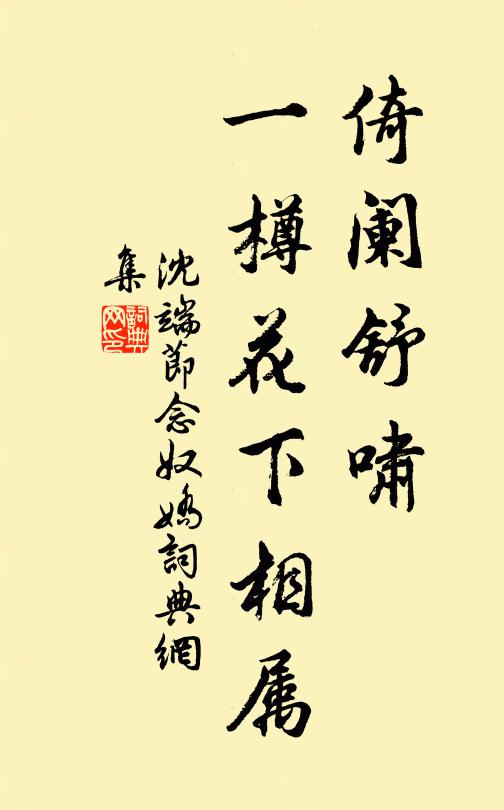 倚阑舒啸
一樽花下相属
沈端節念奴嬌詞典網
集
詞典
网印